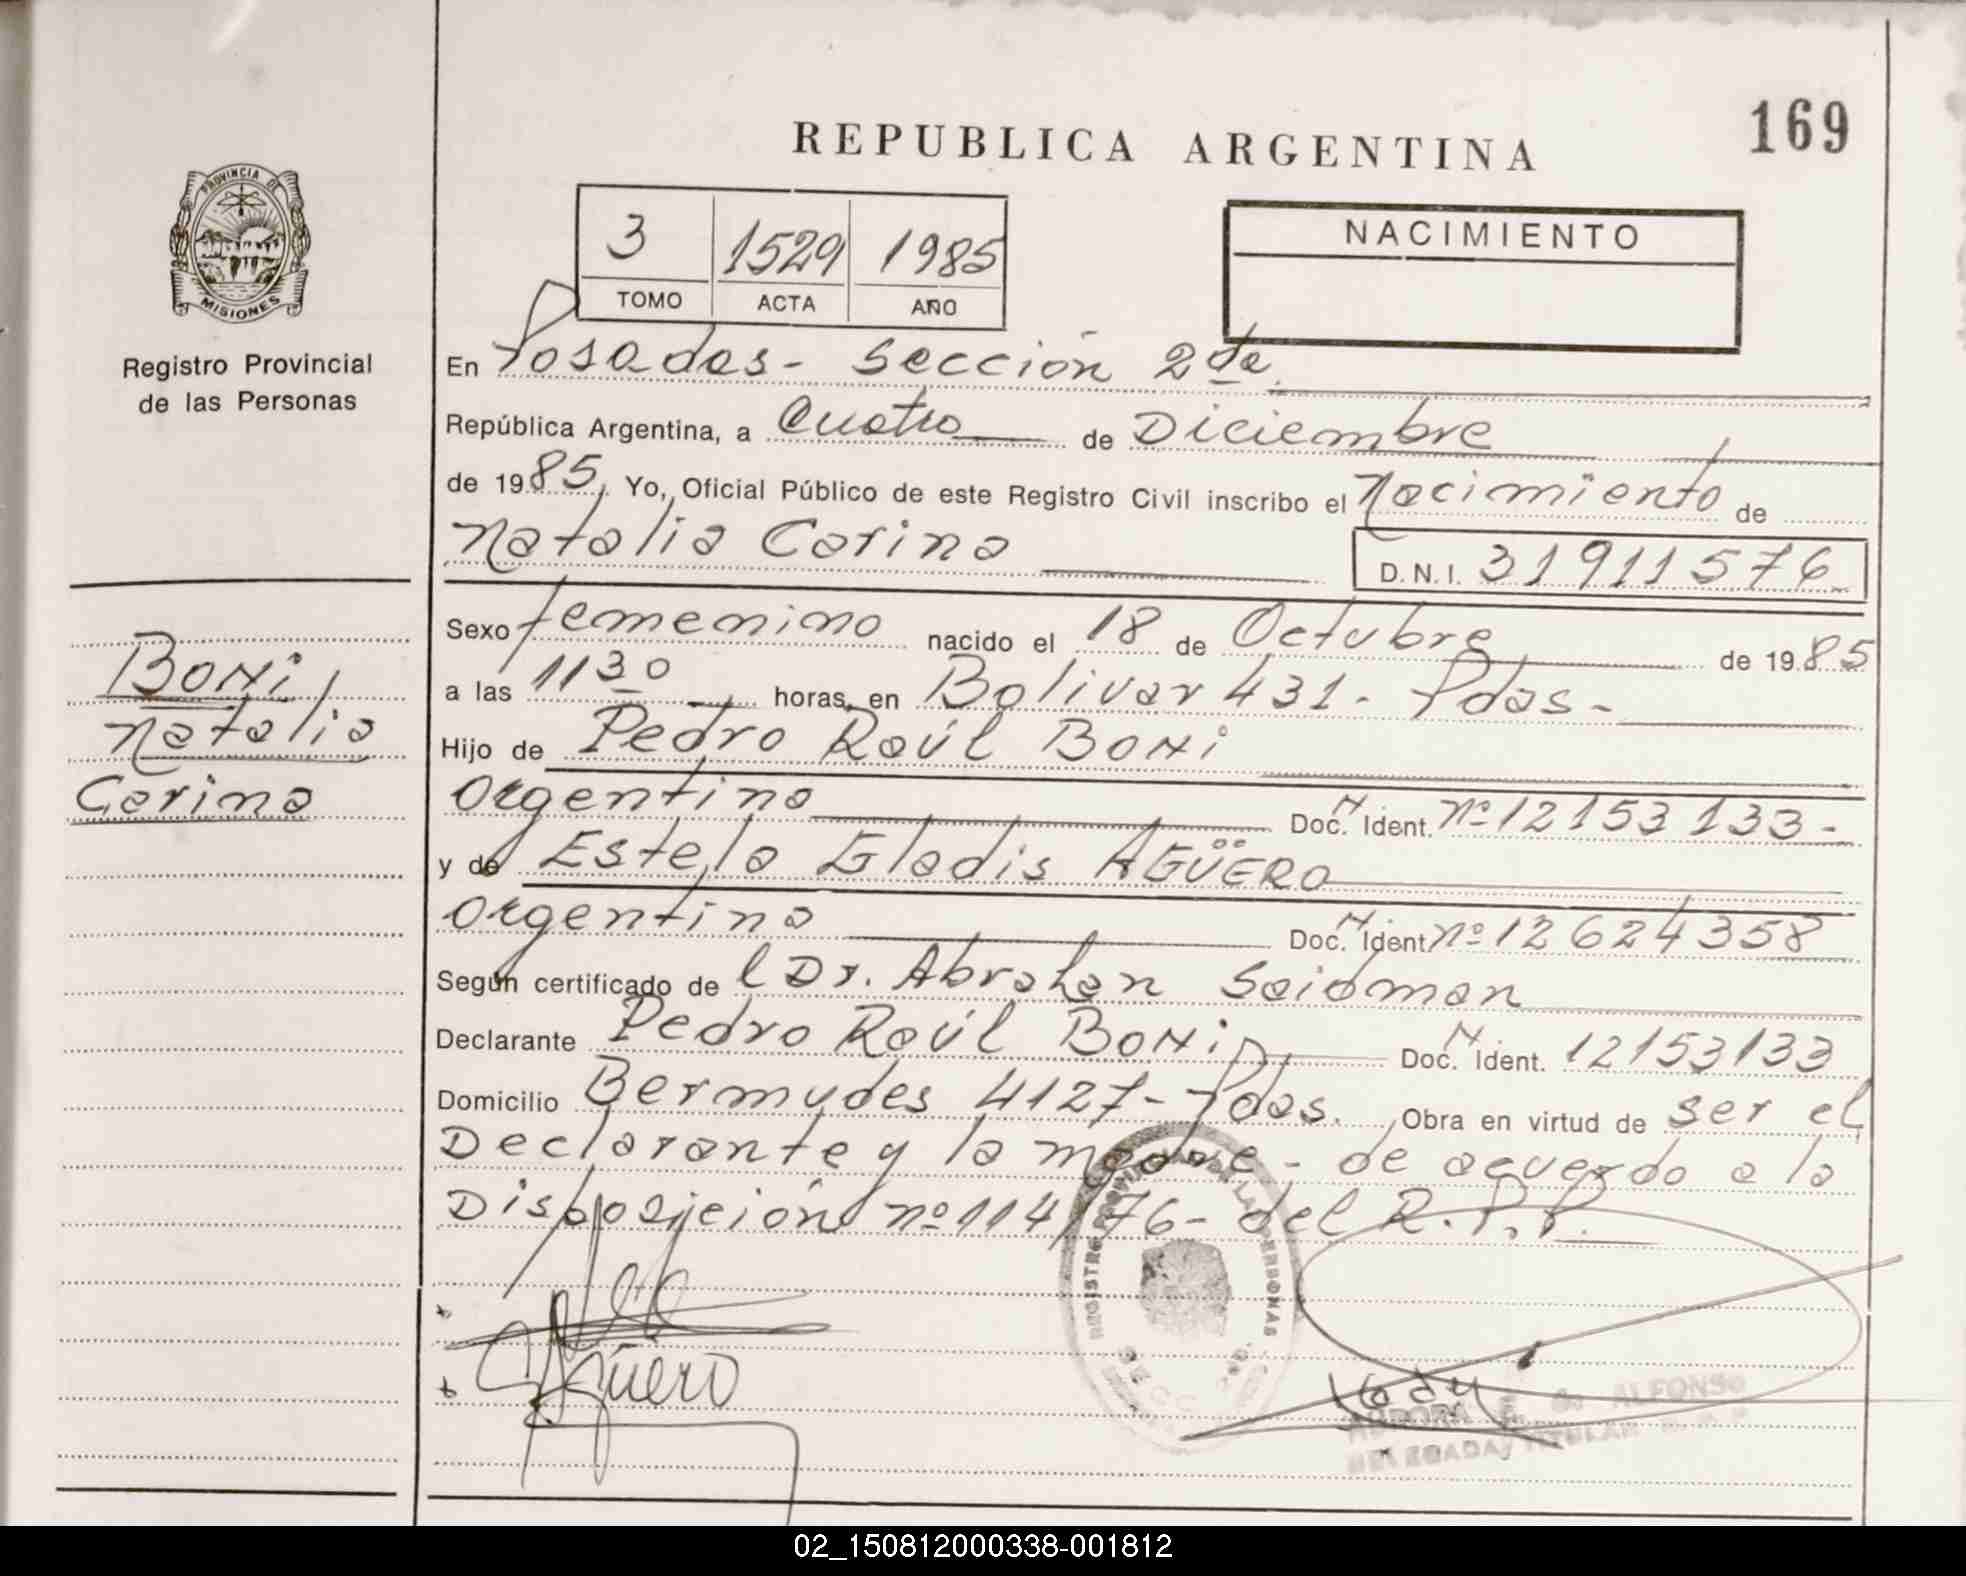 169
REPUBLICA ARGENTINA
PROVINCIA DE
MISIONES
Registro Provincial
de las Personas
3 1529 1985
TOMO ACTA AÑO
NACIMIENTO
En Posadas - Sección 2da.
República Argentina, a Cuatro de Diciembre
de 1985, Yo, Oficial Público de este Registro Civil inscribo el Nacimiento de
Natalia Carina D.N.I. 31911576
Sexo femenino nacido el 18 de Octubre de 1985
a las 1130 horas, en Bolivar 431 - Pdas -
Hijo de Pedro Raúl BoNi
Argentino Doc. N Ident. Nº 12153133 -
y de Estela Gladis AGÜERO
Argentina Doc. N Ident. Nº 12624358
Según certificado de l Dr. Abrahan Seidman
Declarante Pedro Raúl BoNi Doc. N Ident. 12153133
Domicilio Bermudes 4127 - Pdas. Obra en virtud de ser el
Declarante y la madre - de acuerdo a la
Disposición nº 114/76 - del R.P.P.
BoNi
Natalia
Carina
Agüero
REGISTRO PROVINCIAL DE LAS PERSONAS
ALFONSO
DELEGADA TITULAR
02_150812000338-001812